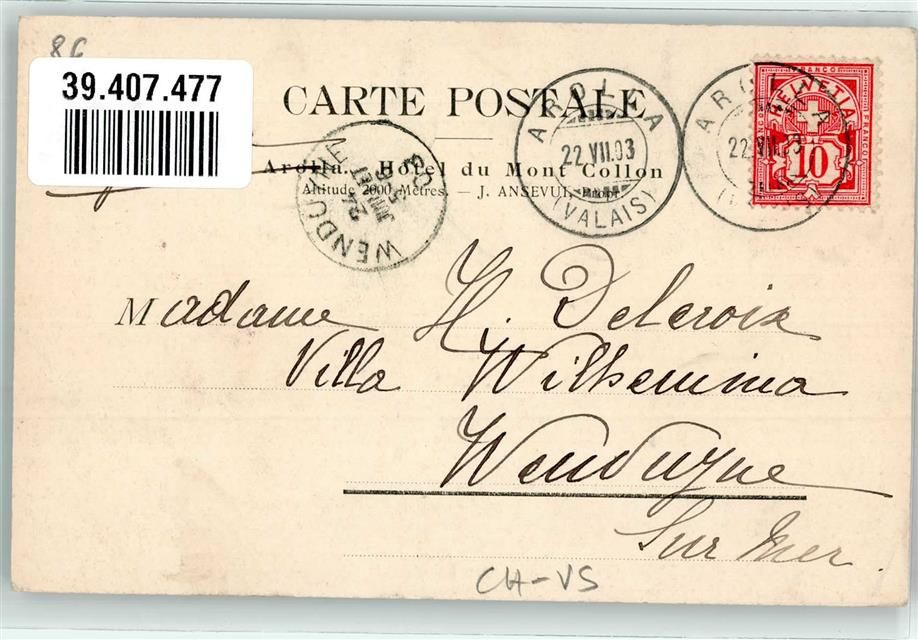 86
39.407.477
CARTE POSTALE
Arolla. Hôtel du Mont Collon
Altitude 2000 Mètres. — J. ANSEVUI, Propr.
AROLLA
22.VII.03
(VALAIS)
AROLLA
22.VII.03
FRANCO
HELVETIA
FRANCO
10
WENDUYNE
24
JUIL
Madame H. Delcroix
Villa Wilhemina
Wenduyne
Sur Mer.
CH-VS